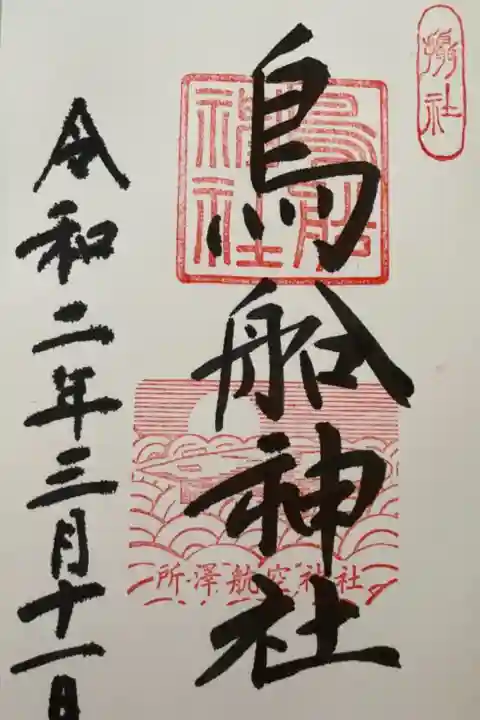 摂社
鳥船神社
鳥船神社
所澤航空神社
令和二年三月十一日